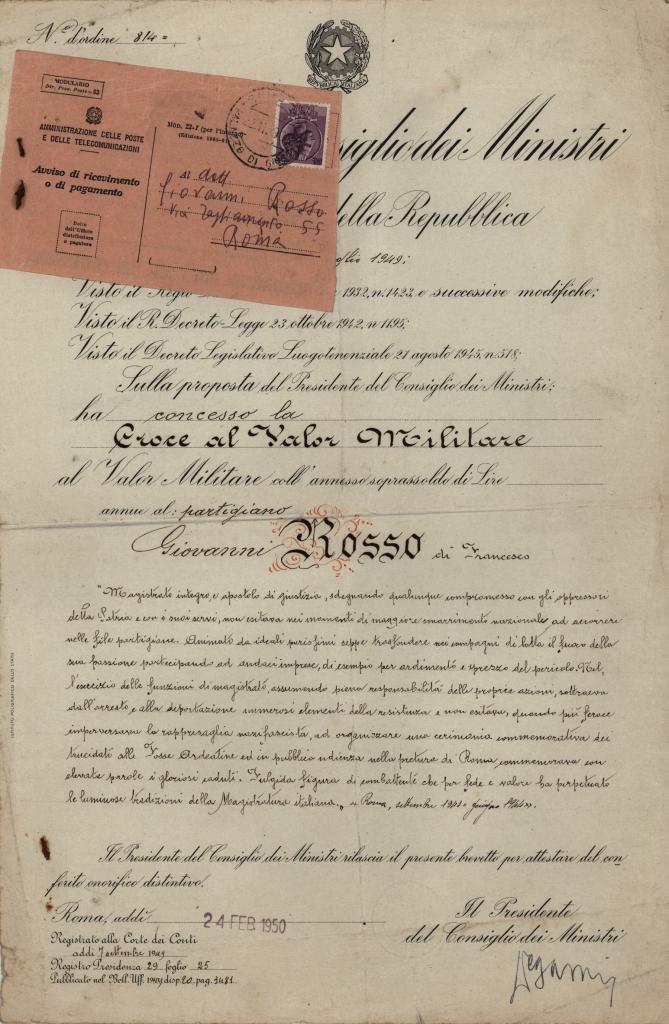 N.° d'ordine 814=
REPVBBLICA ITALIANA
MODULARIO
Dir. Prov. Poste - 53
AMMINISTRAZIONE DELLE POSTE
E DELLE TELECOMUNICAZIONI
Avviso di ricevimento
o di pagamento
Bollo
dell'Ufficio
distributore
o pagatore
Mod. 22-I
Al dott
Giovanni Rosso
Via Tagliamento 55
Roma
siglio dei Ministri
della Repubblica
glio 1949;
Visto il Regio 1932, n. 1423, e successive modifiche;
Visto il R. Decreto-Legge 23 ottobre 1942, n. 1195;
Visto il Decreto Legislativo Luogotenenziale 21 agosto 1945, n. 518;
Sulla proposta del Presidente del Consiglio dei Ministri;
ha concesso la
Croce al Valor Militare
al Valor Militare coll'annesso soprassoldo di Lire
annue al: partigiano
Giovanni Rosso di Francesco
"Magistrato integro, e apostolo di giustizia, sdegnando qualunque compromesso con gli oppressori
della Patria e con i suoi servi, non esitava nei momenti di maggiore smarrimento nazionale ad accorrere
nelle file partigiane. Animato da ideali purissimi seppe trasfondere nei compagni di lotta il fuoco della
sua passione partecipando ad audaci imprese, di esempio per ardimento e sprezzo del pericolo. Nel-
l'esercizio delle funzioni di magistrato, assumendo piena responsabilità delle proprie azioni, sottraeva
dall'arresto e alla deportazione numerosi elementi della resistenza e non esitava, quando più feroce
imperversava la rappresaglia nazifascista, ad organizzare una cerimonia commemorativa dei
trucidati alle Fosse Ardeatine ed in pubblica udienza nella pretura di Roma commemorava con
elevate parole i gloriosi caduti. Fulgida figura di combattente che per fede e valore ha perpetuato
le luminose tradizioni della Magistratura italiana." = Roma, settembre 1943 = giugno 1944 =.
Il Presidente del Consiglio dei Ministri rilascia il presente brevetto per attestare del con=
ferito onorifico distintivo.
Roma, addì 24 FEB 1950
Il Presidente
del Consiglio dei Ministri
Registrato alla Corte dei Conti
addì 7 settembre 1949
Registro Presidenza 29 foglio 25
Pubblicato nel Boll. Uff. 1949 disp. 20 pag. 3481
Degasperi
ISTITUTO POLIGRAFICO DELLO STATO